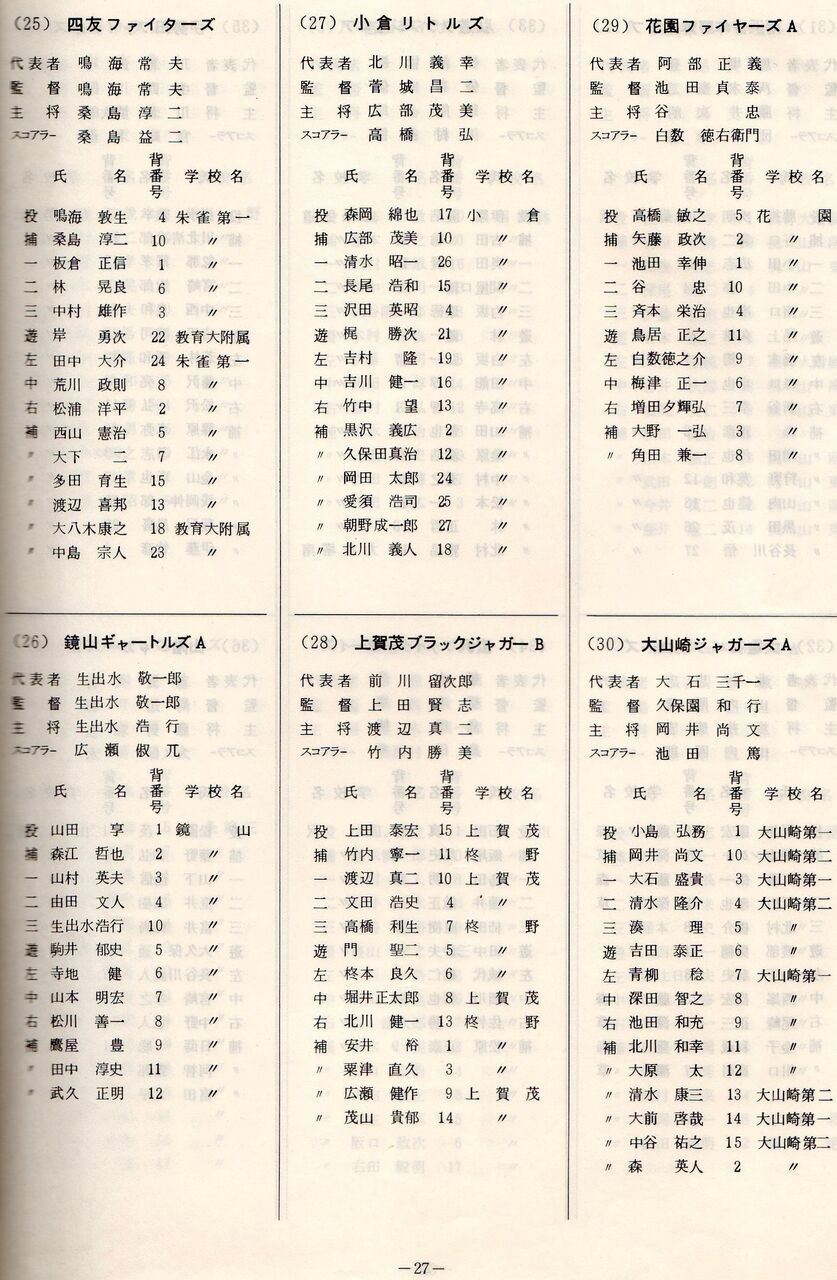 (25) 四友ファイターズ
代表者 鳴海常夫
監督 鳴海常夫
主将 桑島淳二
スコアラー 桑島益二
氏名 背番号 学校名
投 鳴海敦生 4 朱雀第一
補 桑島淳二 10 〃
一 板倉正信 1 〃
二 林晃良 6 〃
三 中村雄作 3 〃
遊 岸勇次 22 教育大附属
左 田中大介 24 朱雀第一
中 荒川政則 8 〃
右 松浦洋平 2 〃
補 西山憲治 5 〃
〃 大下二 7 〃
〃 多田育生 15 〃
〃 渡辺喜邦 13 〃
〃 大八木康之 18 教育大附属
〃 中島宗人 23 〃
(26) 鏡山ギャートルズA
代表者 生出水敬一郎
監督 生出水敬一郎
主将 生出水浩行
スコアラー 広瀬俶兀
氏名 背番号 学校名
投 山田享 1 鏡山
補 森江哲也 2 〃
一 山村英夫 3 〃
二 由田文人 4 〃
三 生出水浩行 10 〃
遊 駒井郁史 5 〃
左 寺地健 6 〃
中 山本明宏 7 〃
右 松川善一 8 〃
補 鷹屋豊 9 〃
〃 田中淳史 11 〃
〃 武久正明 12 〃
(27) 小倉リトルズ
代表者 北川義幸
監督 菅城昌二
主将 広部茂美
スコアラー 高橋弘
氏名 背番号 学校名
投 森岡綿也 17 小倉
捕 広部茂美 10 〃
一 清水昭一 26 〃
二 長尾浩和 15 〃
三 沢田英昭 4 〃
遊 梶勝次 21 〃
左 吉村隆 19 〃
中 吉川健一 16 〃
右 竹中望 13 〃
補 黒沢義広 2 〃
〃 久保田真治 12 〃
〃 岡田太郎 24 〃
〃 愛須浩司 25 〃
〃 朝野成一郎 27 〃
〃 北川義人 18 〃
(28) 上賀茂ブラックジャガーB
代表者 前川留次郎
監督 上田賢志
主将 渡辺真二
スコアラー 竹内勝美
氏名 背番号 学校名
投 上田泰宏 15 上賀茂
捕 竹内寧一 11 柊野
一 渡辺真二 10 上賀茂
二 文田浩史 4 〃
三 高橋利生 7 柊野
遊 門聖二 5 〃
左 柊本良久 6 〃
中 堀井正太郎 8 上賀茂
右 北川健一 13 柊野
補 安井裕 1 〃
〃 粟津直久 3 〃
〃 広瀬健作 9 上賀茂
〃 茂山貴郁 14 〃
(29) 花園ファイヤーズA
代表者 阿部正義
監督 池田貞泰
主将 谷忠
スコアラー 白数徳右衛門
氏名 背番号 学校名
投 高橋敏之 5 花園
捕 矢藤政次 2 〃
一 池田幸伸 1 〃
二 谷忠 10 〃
三 斉本栄治 4 〃
遊 鳥居正之 11 〃
左 白数徳之介 9 〃
中 梅津正一 6 〃
右 増田夕輝弘 7 〃
補 大野一弘 3 〃
〃 角田兼一 8 〃
(30) 大山崎ジャガーズA
代表者 大石三千一
監督 久保園和行
主将 岡井尚文
スコアラー 池田篤
氏名 背番号 学校名
投 小島弘務 1 大山崎第一
捕 岡井尚文 10 大山崎第二
一 大石盛貴 3 大山崎第一
二 清水隆介 4 大山崎第二
三 湊理 5 〃
遊 吉田泰正 6 〃
左 青柳稔 7 大山崎第一
中 深田智之 8 〃
右 池田和充 9 〃
補 北川和幸 11 〃
〃 大原太 12 〃
〃 清水康三 13 大山崎第二
〃 大前啓哉 14 大山崎第一
〃 中谷祐之 15 大山崎第二
〃 森英人 2 〃
—27—